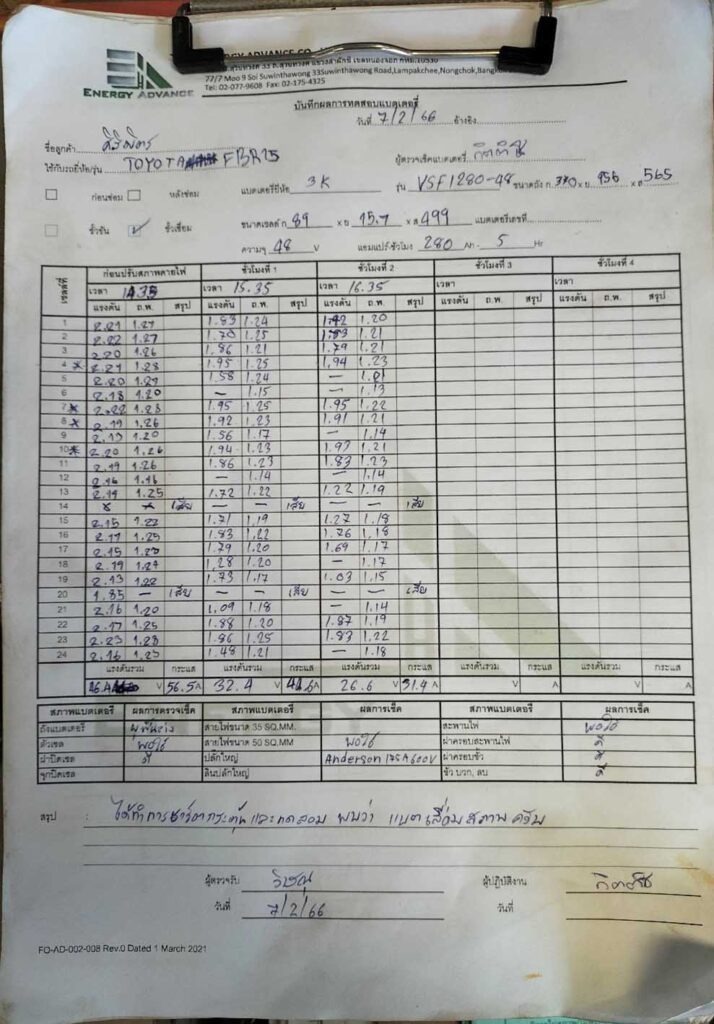 ENERGY ADVANCE
77/7 Moo 9 Soi Suwinthawong 33Suwinthawong Road,Lampakchee,Nongchok,Bangkok
Tel: 02-077-9608 Fax: 02-175-4325
บันทึกผลการทดสอบแบตเตอรี่
วันที่ 7/2/66 อ้างอิง
ชื่อลูกค้า
ใช้กับรถยี่ห้อ/รุ่น TOYOTA FBR15 ผู้ตรวจเช็คแบตเตอรี่
ก่อนซ่อม หลังซ่อม แบตเตอรี่ยี่ห้อ 3K รุ่น VSF1280-48 ขนาดถัง ก 370 x ย 956 x ส 565
ขั้วขัน ขั้วเชื่อม ขนาดเซลล์ ก 89 x ย 15.7 x ส 499 แบตเตอรี่เลขที่
ความจุ 48 V แอมแปร์-ชั่วโมง 280 Ah - 5 Hr
เซลล์ที่ ก่อนปรับสภาพคายไฟ ชั่วโมงที่ 1 ชั่วโมงที่ 2 ชั่วโมงที่ 3 ชั่วโมงที่ 4
เวลา 14.35 เวลา 15.35 เวลา 16.35 เวลา เวลา
แรงดัน ถ.พ. สรุป แรงดัน ถ.พ. สรุป แรงดัน ถ.พ. สรุป แรงดัน ถ.พ. สรุป แรงดัน ถ.พ. สรุป
1 2.21 1.27 1.83 1.24 1.42 1.20
2 2.22 1.27 1.70 1.25 1.83 1.21
3 2.20 1.26 1.86 1.21 1.79 1.21
4 2.21 1.28 1.95 1.25 1.94 1.23
5 2.20 1.29 1.58 1.24 — 1.21
6 2.18 1.20 — 1.15 — 1.13
7 2.22 1.28 1.95 1.25 1.95 1.22
8 2.19 1.26 1.92 1.23 1.91 1.21
9 2.13 1.20 1.56 1.17 — 1.14
10 2.20 1.26 1.94 1.23 1.93 1.21
11 2.19 1.26 1.86 1.23 1.83 1.23
12 2.16 1.16 — 1.14 — 1.14
13 2.19 1.25 1.72 1.22 1.22 1.19
14 x x เสีย — — เสีย — — เสีย
15 2.15 1.22 1.71 1.19 1.27 1.18
16 2.17 1.25 1.83 1.22 1.76 1.18
17 2.15 1.23 1.79 1.20 1.69 1.17
18 2.19 1.27 1.28 1.20 — 1.17
19 2.13 1.22 1.73 1.17 1.03 1.15
20 1.85 — เสีย — — เสีย — — เสีย
21 2.16 1.20 1.09 1.18 — 1.14
22 2.17 1.25 1.88 1.20 1.87 1.19
23 2.23 1.28 1.86 1.25 1.83 1.22
24 2.16 1.23 1.48 1.21 — 1.18
แรงดันรวม กระแส แรงดันรวม กระแส แรงดันรวม กระแส แรงดันรวม กระแส แรงดันรวม กระแส
V 56.5 A 32.4 V A 26.6 V 31.4 A V A V A
สภาพแบตเตอรี่ ผลการตรวจเช็ค สภาพแบตเตอรี่ ผลการเช็ค สภาพแบตเตอรี่ ผลการเช็ค
ถังแบตเตอรี่ สายไฟขนาด 35 SQ.MM. สะพานไฟ พอใช้
ตัวเซล พอใช้ สายไฟขนาด 50 SQ.MM พอใช้ ฝาครอบสะพานไฟ ดี
ฝาปิดเซล ดี ปลั๊กใหญ่ Anderson 175A600V ฝาครอบขั้ว ดี
จุกปิดเซล ลิ้นปลั๊กใหญ่ ขั้ว บวก, ลบ ดี
สรุป : ได้ทำการชาร์ตกระตุ้น และทดสอบ พบว่า แบตเสื่อมสภาพ ครับ
ผู้ตรวจรับ ผู้ปฏิบัติงาน
วันที่ 7/2/66 วันที่
FO-AD-002-008 Rev.0 Dated 1 March 2021